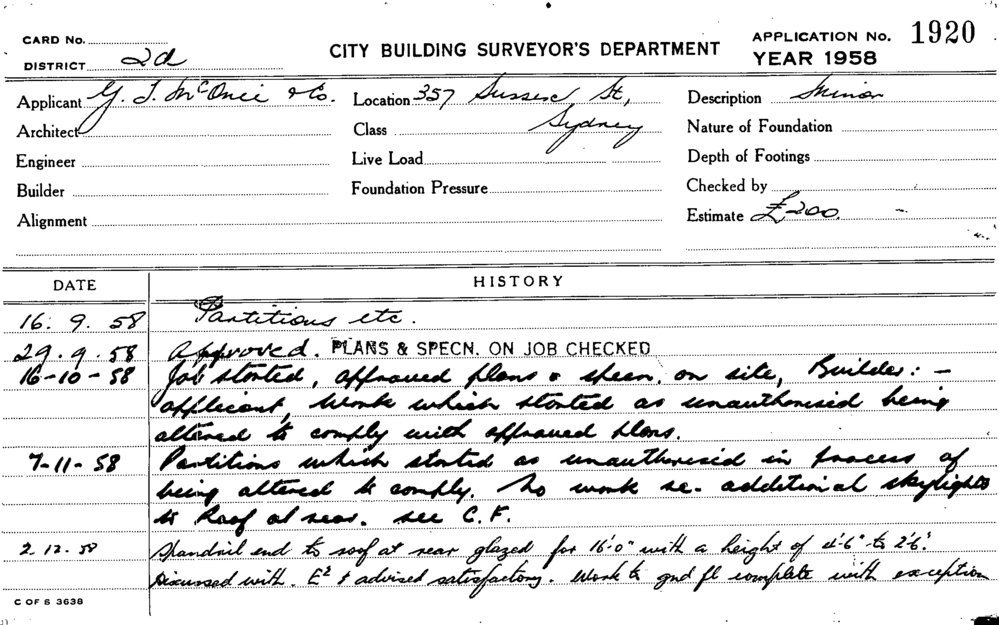 CARD No.
DISTRICT 2d
CITY BUILDING SURVEYOR'S DEPARTMENT
APPLICATION No. 1920
YEAR 1958
Applicant G. J. McOnie & Co.
Location 357 Sussex St,
Sydney
Description Minor
Architect
Class
Nature of Foundation
Engineer
Live Load
Depth of Footings
Builder
Foundation Pressure
Checked by
Alignment
Estimate £200.
DATE
HISTORY
16. 9. 58 Partitions etc.
29. 9. 58 Approved. PLANS & SPECN. ON JOB CHECKED
16-10-58 Job started, approved plans & specn. on site, Builder: -
applicant, Work which started as unauthorised being
altered to comply with approved plans.
7-11-58 Partitions which started as unauthorised in process of
being altered to comply. No work re. additional skylights
to Roof at rear. see C.F.
2. 12. 58 Spandril end to roof at rear glazed for 16'-0" with a height of 4'6" to 2'6".
Discussed with. E2 & advised satisfactory. Work to gnd fl complete with exception
C OF S 3638